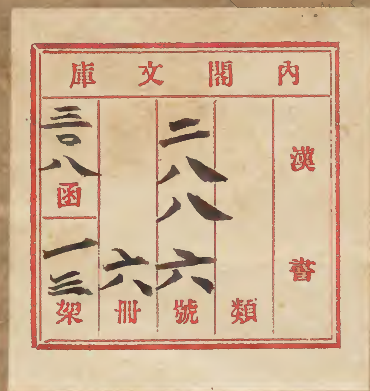 內閣文庫
漢書
類
二八八六號
六冊
三〇八函
一三架